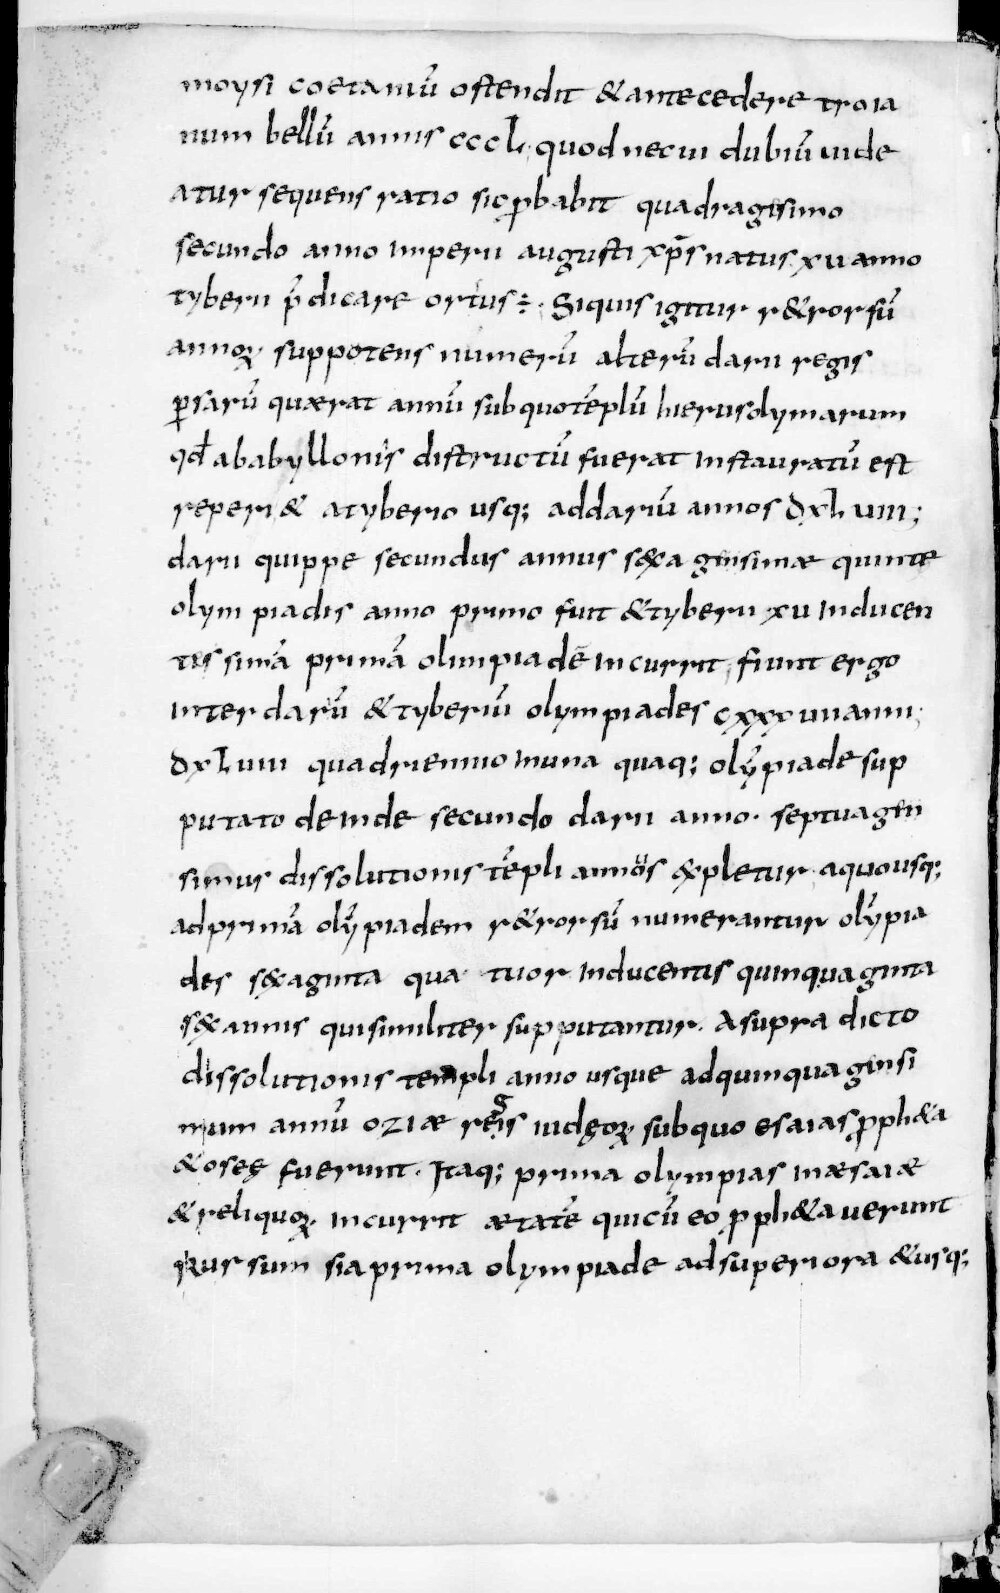 moysi coetaniū ostendit & antecedere troia
num bellū annis cccL. quod necui dubiū uide
atur sequens ratio sic ꝓbabit quadragesimo
secundo anno imperii augusti xp̄s natus. xu anno
tyberii p̄dicare orsus ÷. Siquis igitur r&rorsū
annoꝝ suppotens numerū alterū darii regis
ꝑsarū quærat annū sub quo tēplū hierusolymarum
qđ ababyllonis distructū fuerat instauratū est
reperi& atyberio usq; addariū annos DxLuiii;
darii quippe secundus annus s&xa gensimæ quinte
olym piadis anno primo fuit & tyberii xu inducen
tissimā primā olimpiadē incurrit, fiunt ergo
inter darū & tyberiū olympiades cxxxuii anni;
DxLuiii quadriennio inuna quaq; olȳpiade sup
putato deinde secundo darii anno. septuagen
simus dissolutionis tēpli annos &xpletur aquousq;
adprimā olȳpiadem r&rorsū numerantur olȳpia
des s&xaginta qua tuor inducentis quinquaginta
s&x annis qui similiter supputantur. Asupra dicto
dissolutionis templi anno usque adquinquagensi
mum annū oziæ regis iudęoꝝ sub quo esaias ꝓph&a
& oseę fuerunt. Itaq; prima olympias inæsaiæ
& reliquoꝝ incurrit ætatē quicū eo ꝓph&auerunt
Rursum si aprima olympiade adsuperiora &usq;